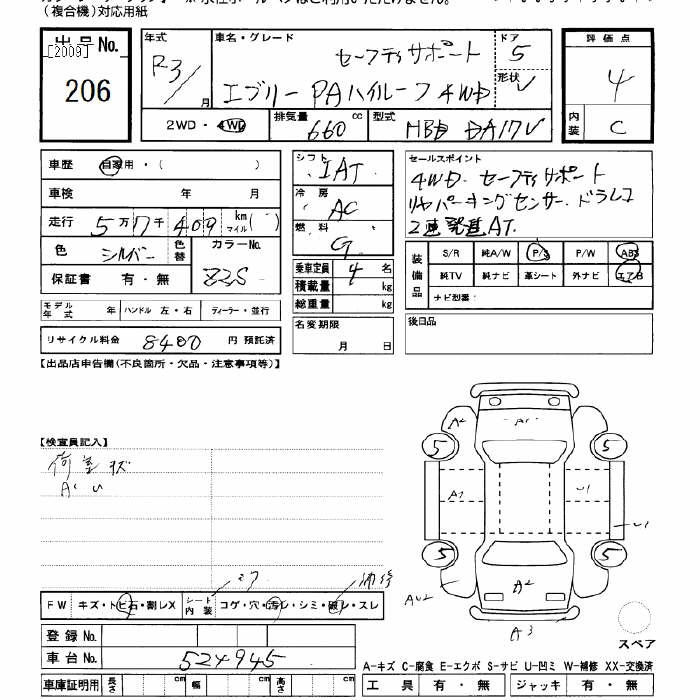 (複合機)対応用紙
出品No.
[2009]
206
年式
R3/
月
車名・グレード
セーフティサポート
エブリー PAハイルーフ 4WD
ドア
5
形状
V
評価点
4
内装
C
2WD・4WD
排気量
660
cc
型式
HBD DA17V
車歴
自家用・( )
車検
年 月
走行
5万7千409
km
マイル
色
シルバー
色替
カラーNo.
Z2S
保証書
有・無
モデル年式
年
ハンドル 左・右
ディーラー・並行
リサイクル料金
8400
円 預託済
シフト
IAT
冷房
AC
燃料
G
乗車定員
4
名
積載量
kg
総重量
kg
名変期限
月 日
セールスポイント
4WD. セーフティサポート
リヤパーキングセンサー. ドラレコ
AT.
装備品
S/R
純A/W
P/S
P/W
ABS
純TV
純ナビ
革シート
外ナビ
エアB
ナビ型番:
後日品
【出品店申告欄(不良箇所・欠品・注意事項等)】
【検査員記入】
荷室 キズ
A U
FW
キズ・トビ石・割レX
シート内装
コゲ・穴・汚レ・シミ・破レ・スレ
補修
登録No.
車台No.
524945
車庫証明用
長さ
cm
幅
cm
高さ
cm
A2
A1
5
5
A1
U1
U1
5
5
A2
AU2
A3
スペア
A-キズ C-腐食 E-エクボ S-サビ U-凹ミ W-補修 XX-交換済
工具
有・無
ジャッキ
有・無